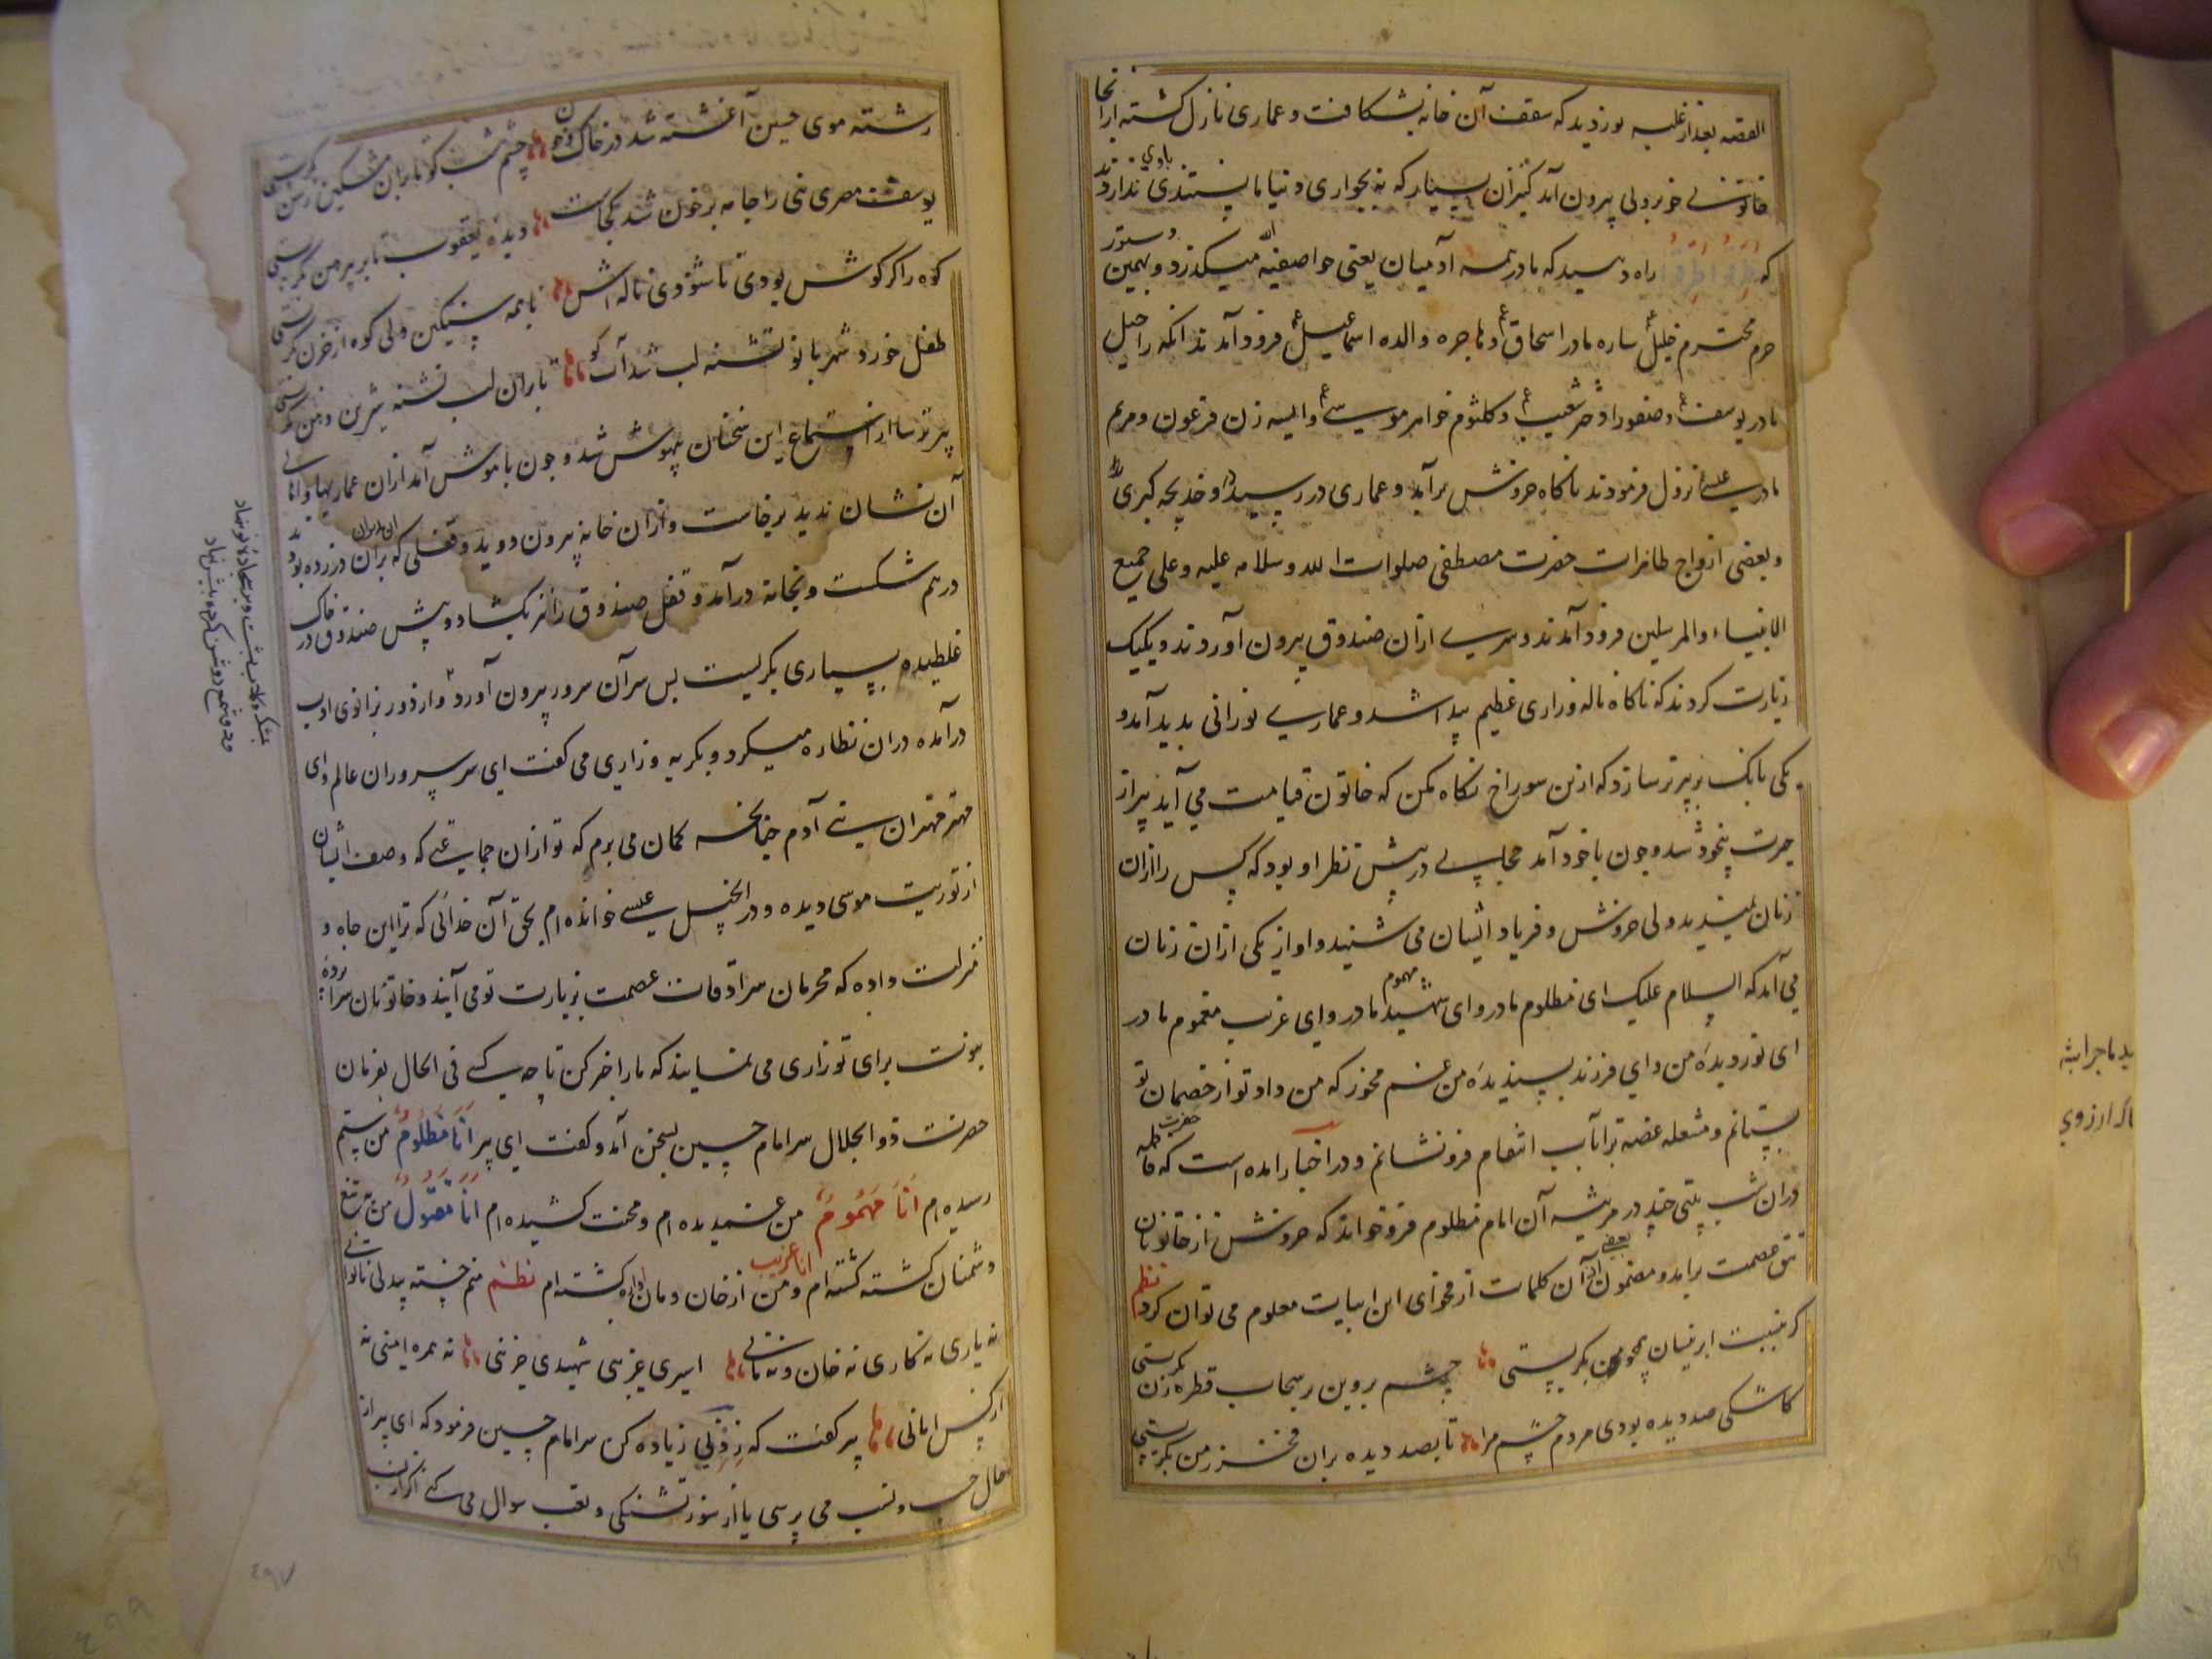 القصه بعد از غلبه نور دید که سقف آن خانه بشکافت و عماری نازل گشته از آنجا
خاتونی خوبروی بیرون آمد کنیزان بسیار که
که طرقوا طرقوا راه دهید که مادر همه آدمیان یعنی حوا صفیه میگذرد و بهمین دستور
حرم محترم خلیل ساره مادر اسحاق و هاجره والده اسماعیل فرود آمدند آنگه راحیل
مادر یوسف و صفورا دختر شعیب و کلثوم خواهر موسی و آسیه زن فرعون و مریم
مادر عیسی نزول فرمودند ناکاه خروش برآمد و عماری در رسید و خدیجه کبری
و بعضی ازواج طاهرات حضرت مصطفی صلوات الله و سلامه علیه و علی جمیع
الانبیاء والمرسلین فرود آمدند و سری از آن صندوق بیرون آوردند و یکیک
زیارت کردند که ناکاه ناله و زاری عظیم پیدا شد و عماری نورانی پدید آمد و
یکی بانک بر پیر ترسا زد که ازین سوراخ نکاه مکن که خاتون قیامت می آید پیر از
حیرت بیخود شد و چون با خود آمد حجابی در پیش نظر او بود که کس را از آن
زنان نمیدید ولی خروش و فریاد ایشان می شنید و آواز یکی از آن زنان
می آمد که السلام علیک ای مظلوم مادر و ای شهید مهموم مادر و ای غریب مغموم مادر
ای نور دیدهٔ من و ای فرزند پسندیدهٔ من غم مخور که من داد تو از خصمان تو
بستانم و مشعله غصه ترا بآب انتقام فرو نشانم و در اخبار آمده است که حضرت فاطمه
در آن شب بیتی چند در مرثیه آن امام مظلوم فرو خواند که خروش از خاتونان
تتق عصمت برآمد و مضمون بعضی از آن کلمات از فحوای این ابیات معلوم می توان کرد نظم
کر نیست ابر نیسان همچو من بگریستی چشم پروین سحاب قطره زن بگریستی
کاشکی صد دیده بودی مردم چشم مرا تا بصد دیده بران من بگریستی
رشته موی حسین آغشته شد در خاک و خون چشم شب کو تا بران مشکین رسن بگریستی
یوسف مصری نی را جامه پر خون شد کجاست دیده یعقوب تا بر پیرهن بگریستی
کوه را کر گوش بودی تا شنودی ناله اش با همه سنگین دلی کوه از حزن بگریستی
طفل خورد شهربانو تشنه لب شد آب کو تا بران لب تشنه شیرین دهن بگریستی
پیر ترسا از استماع این سخنان بیهوش شد و چون با هوش آمد از آن عماریها و اهالی
آن نشان ندید برخاست و از آن خانه بیرون دوید و قفلی که بران در زده بودند
درهم شکست و بخانه درآمد و قفل صندوق را نیز بکشاد و پیش صندوق در خاک
غلطیده بسیاری بگریست پس سر آن سرور بیرون آورد و از دور بزانوی ادب
درآمده در آن نظاره میکرد و بگریه و زاری می گفت ای سر سروران عالم و ای
مهتر مهتران بنی آدم چنانچه گمان می برم که تو از آن جماعتی که وصف ایشان
از توریت موسی دیده و در انجیل عیسی خوانده ام بحق آن خدائی که ترا این جاه و
منزلت داده که محرمان سرادقات عصمت بزیارت تو می آیند و خاتونان سراپرده
برای تو زاری می نمایند که مارا خبر کن تا چه کسی فی الحال بفرمان
حضرت ذو الجلال سر امام حسین بسخن آمد و گفت ای پیر انا مظلوم من ستم
رسیده ام انا مهموم من غمدیده ام و محنت کشیده ام انا مقتول من به تیغ
دشمنان کشته گشته ام انا غریب و من از خان و مان آواره گشته ام نظم منم خسته بیدلی ناتوانی
نه یاری نه کاری نه خان و نه مانی اسیری غریبی شهیدی حزینی نه همره امینی نه
از کس امانی پیر گفت که زدنی زیاده کن سر امام حسین فرمود که ای پیر از
حال حسب و نسب می پرسی یا از سوز تشنگی و تعب سوال می کنی اگر از نسب